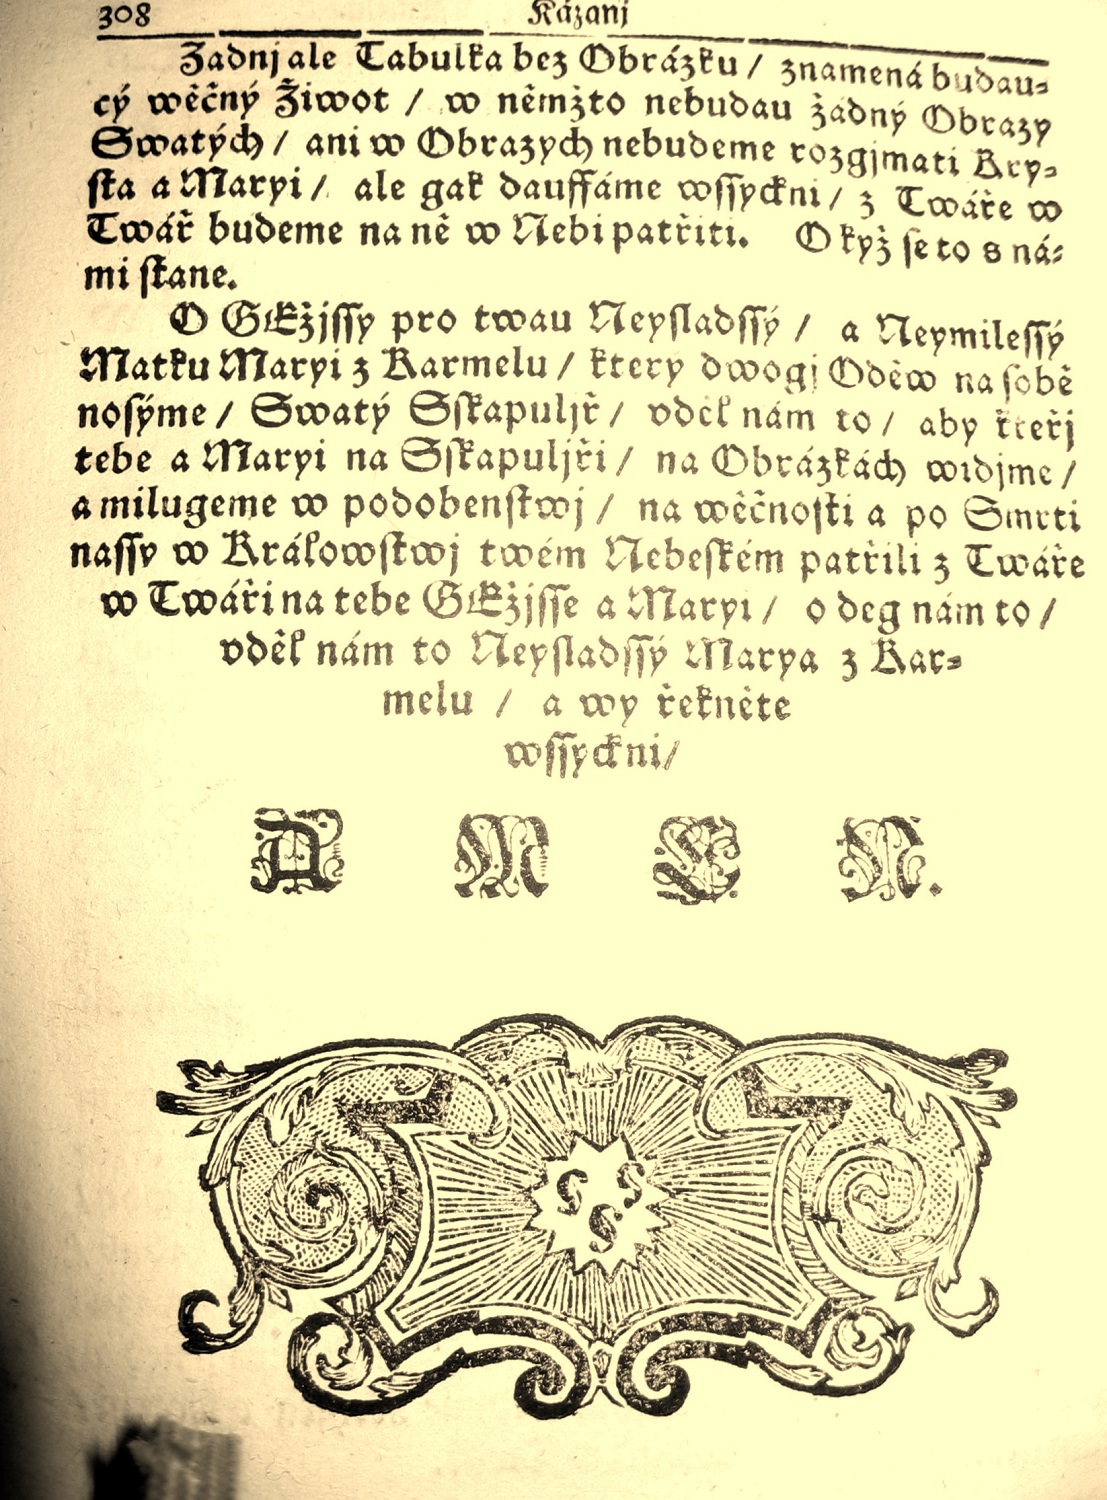 308 Kázanj
Zadnj ale Tabulka bez Obrázku / znamená budau-
cý wěčný Žiwot / w němžto nebudau žadný Obrazy
Swatých / ani w Obrazych nebudeme rozgjmati Kry-
sta a Maryi / ale gak dauffáme wssyckni / z Twáře w
Twář budeme na ně w Nebi patřiti. O kyž se to s ná-
mi stane.
O GEžjssy pro twau Neysladssý / a Neymilessý
Matku Maryi z Karmelu / ktery dwogj Oděw na sobě
nosýme / Swatý Sskapuljř / vděl nám to / aby kteřj
tebe a Maryi na Sskapuljři / na Obrázkách widjme /
a milugeme w podobenstwj / na wěčnosti a po Smrti
nassy w Králowstwj twém Nebeském patřili z Twáře
w Twáři na tebe GEžjsse a Maryi / o deg nám to /
vděl nám to Neysladssý Marya z Kar-
melu / a wy řekněte
wssyckni /
A M E N.
S S
S